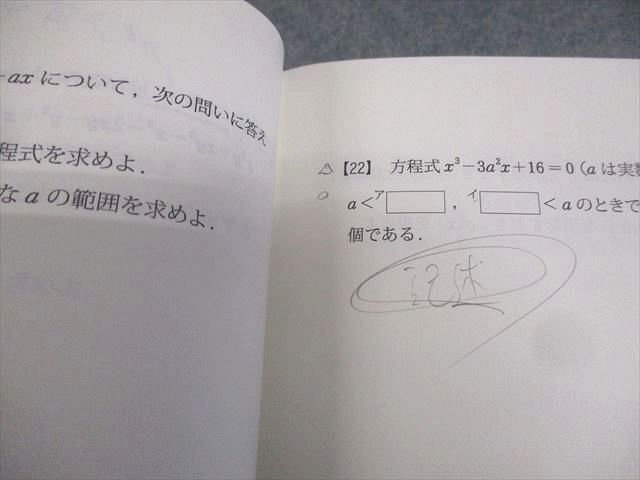 axについて，次の問いに答え
程式を求めよ．
な a の範囲を求めよ．
△【22】 方程式 x³−3a²x+16=0（a は実数
○ a<ア□，イ□<a のときで
個である．
記述